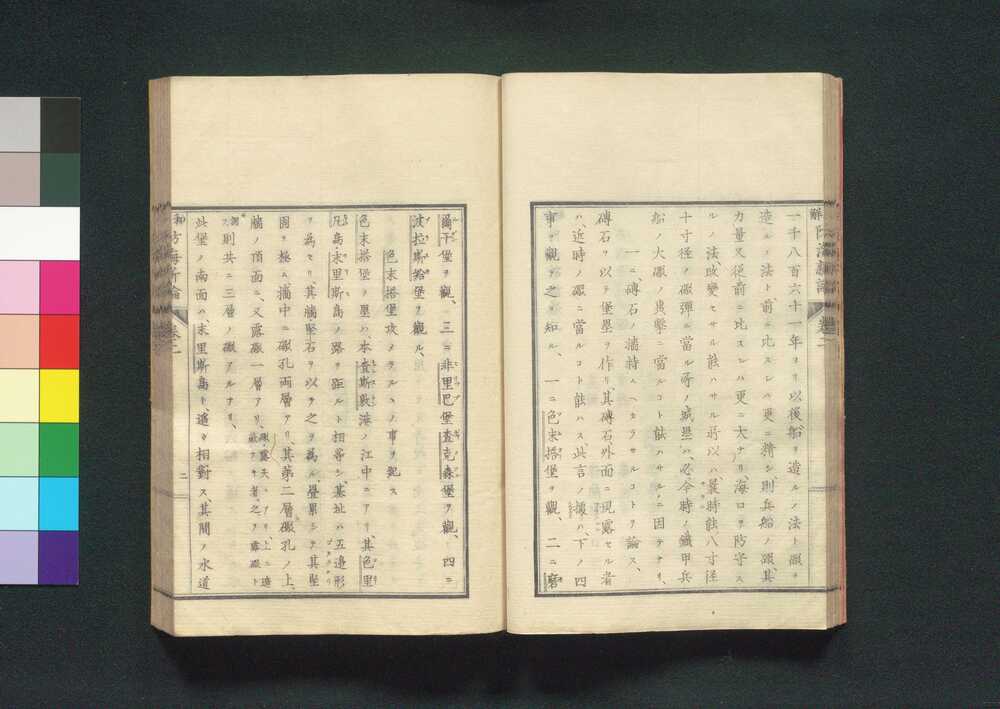 一千八百六十一年ヨリ以後船ヲ造ルノ法ト礮ヲ
造ルノ法ト前ニ比スレハ更ニ精シ則兵船ノ礮其
力量又従前ニ比スレハ更ニ大ナリ海口ヲ防守ス
ルノ法改變セサル能ハサル所以ハ曩時能八寸徑
十寸徑ノ礮彈ニ當ル所ノ城壘ハ必今時ノ鐵甲兵
船ノ大礮ノ轟擊ニ當ルコト能ハサルニ因テナリ
一ニ磚石ノ墻恃ムヘカラサルコトヲ論ス
磚石ヲ以テ堡壘ヲ作リ其磚石外面ニ現露セル者
ハ近時ノ礮ニ當ルコト能ハス此言ノ據ハ下ノ四
事ヲ觀テ之ヲ知ル 一ニ色末搭堡ヲ觀 二ニ磨
爾干堡ヲ觀 三ニ非里巴堡査克森堡ヲ觀 四ニ
波拉斯給堡ヲ觀ル
色末搭堡攻メラルヽノ事ヲ記ス
色末搭堡ノ壘ハ査斯敦港ノ江中ニアリ其色里
凡島末里斯島ノ路ヲ距ルト相等シ基址ハ五邊形
ヲ為セリ其牆堅石ヲ以テ之ヲ為ル疊累シテ其堅
固ヲ極ム墻中ニ礮孔兩層アリ其第二層礮孔ノ上
牆ノ頂面ニ又露礮一層アリ
則共ニ三層ノ礮アルナリ
此堡ノ南面ハ末里斯島ト遙ニ相對ス其間ノ水道
二